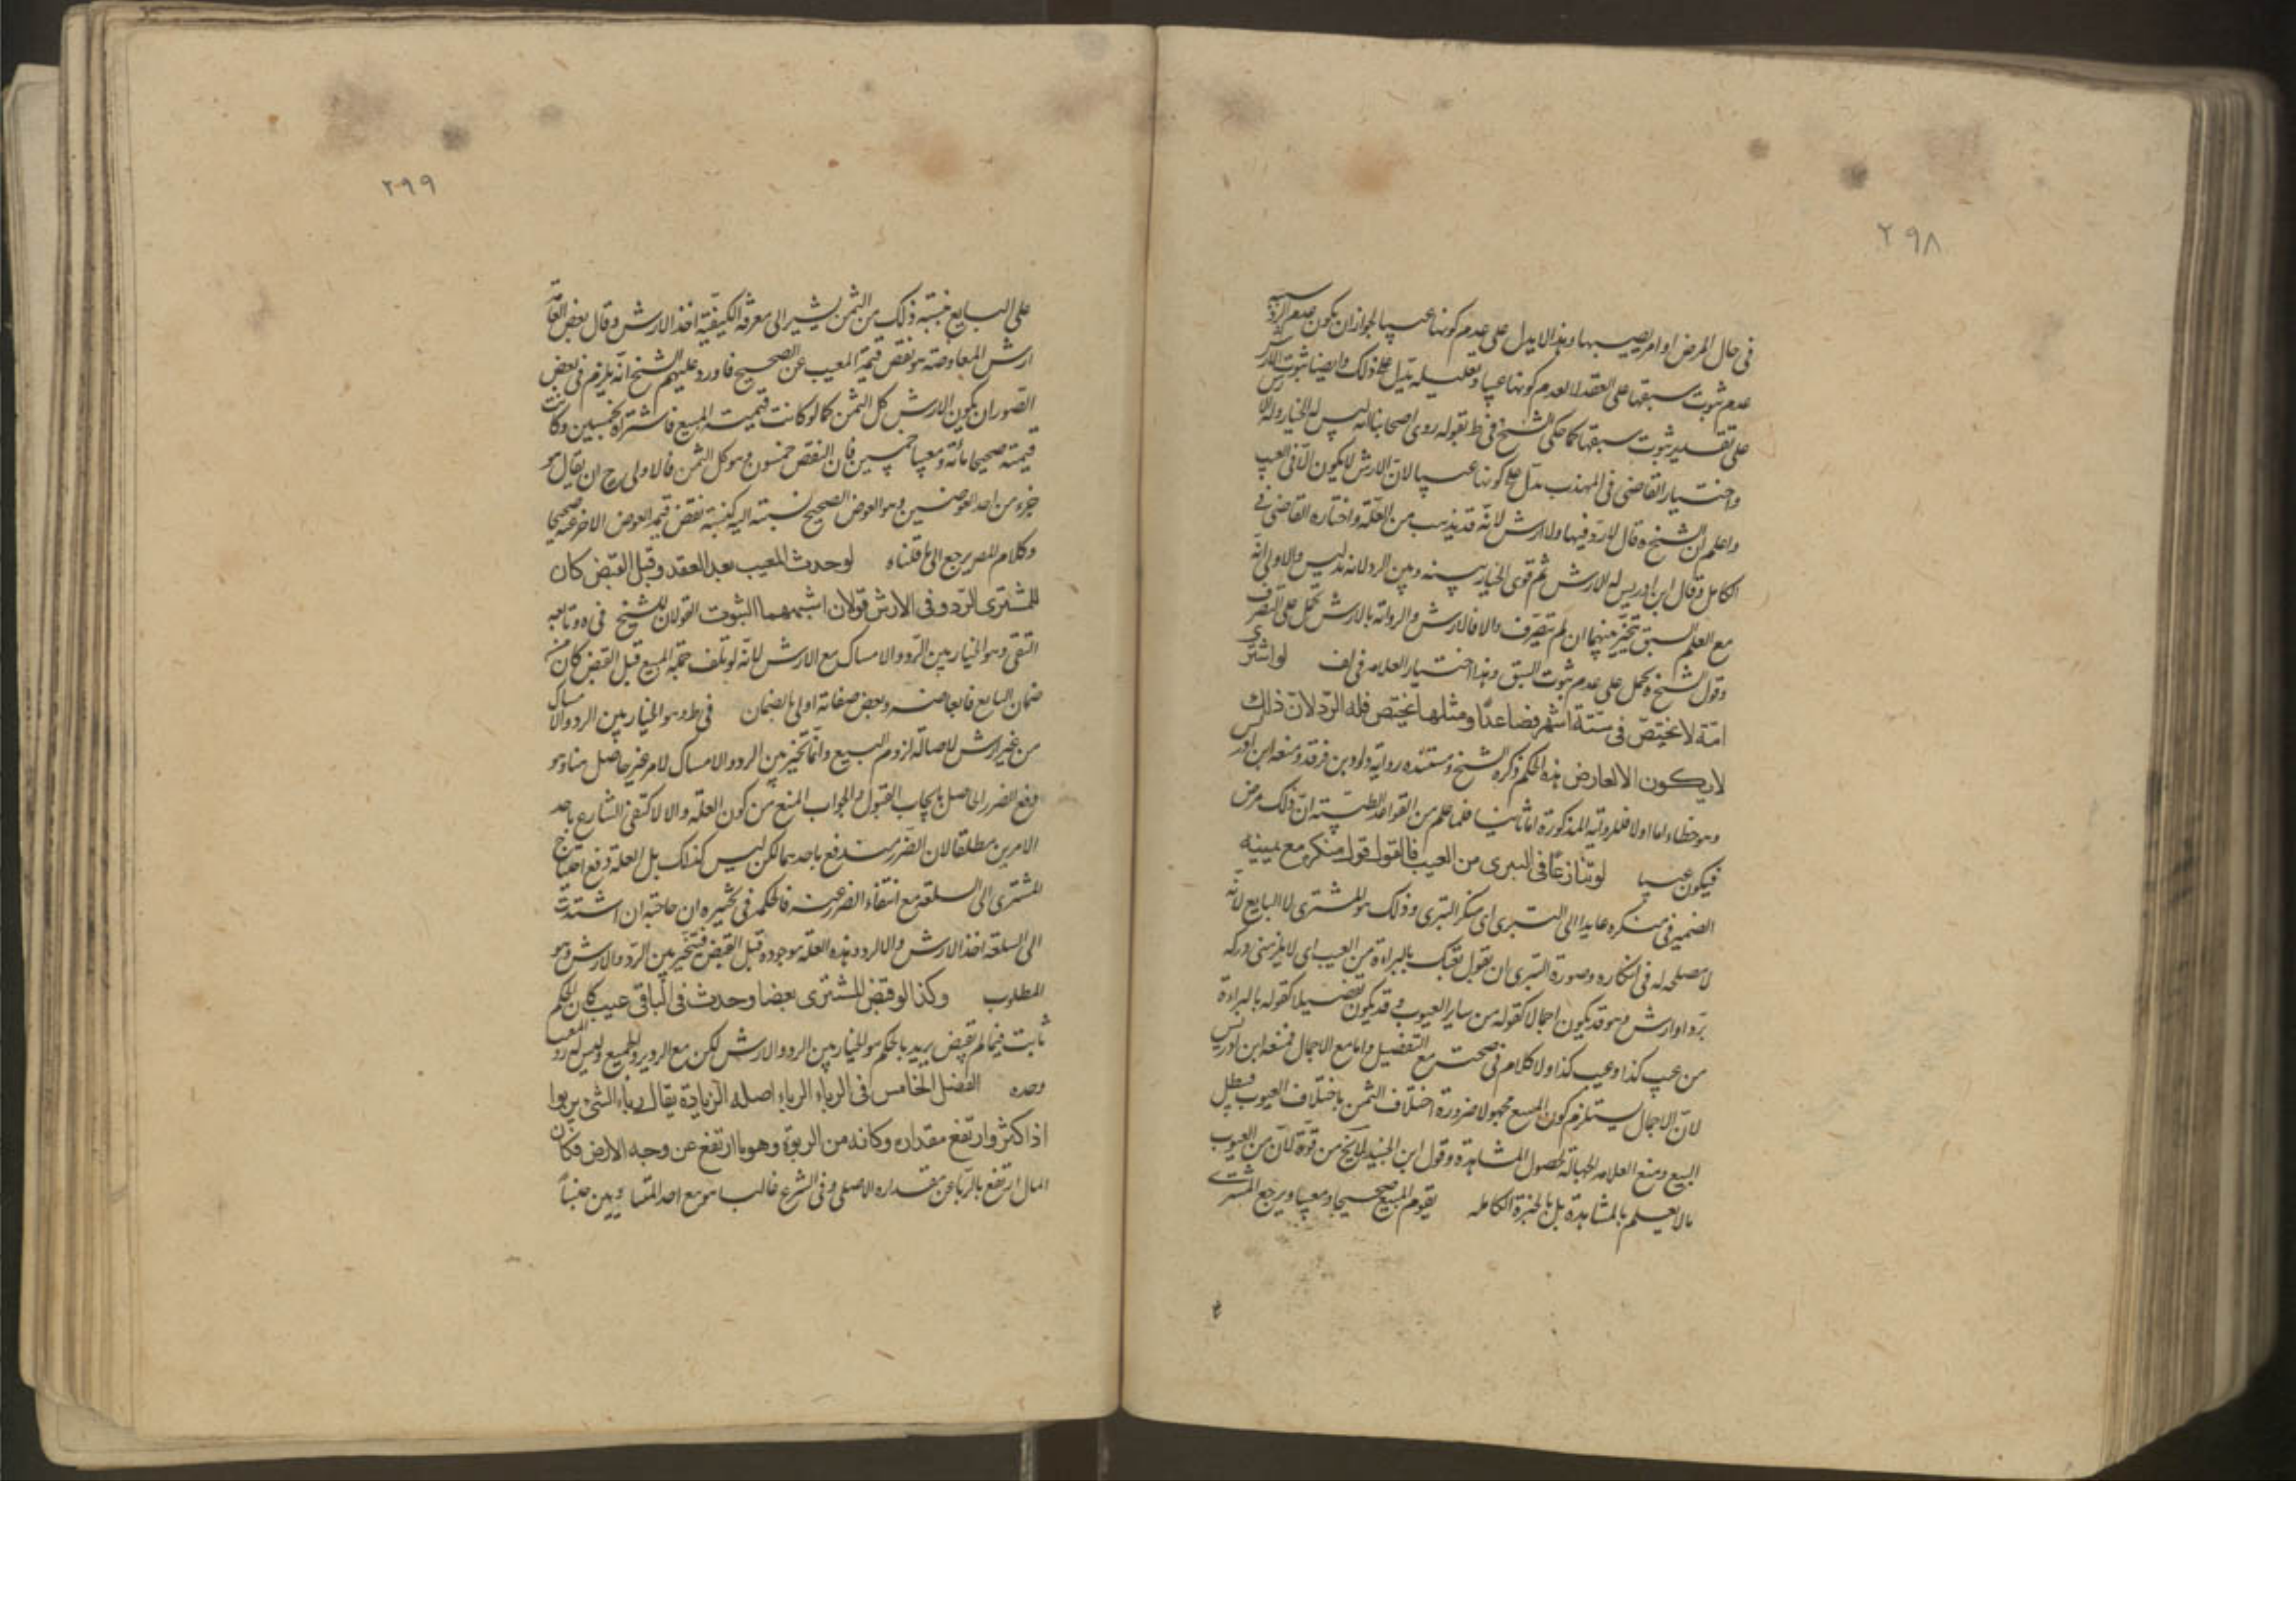 ٢٩٨
في حال المرض او امر يصيبها وهذا لا يدل على عدم كونها عيبا لجواز ان يكون عدم الرد
عدم ثبوت سبقها على العقد لا لعدم كونها عيبا وتعليله يدل على ذلك وايضا ثبوت الارش
على تقدير ثبوت سبقها كما حكى الشيخ في ط بقوله روى اصحابنا انه ليس له الخيار وله الارش
واختيار القاضي في المهذب يدل على كونها عيبا لان الارش لا يكون الا في العيب
واعلم ان الشيخ ره قال لا رد فيها ولا ارش لانه قد يذهب من العلة واختاره القاضي في
الكامل وقال ابن ادريس له الارش ثم قوى الخيار بينه وبين الرد لانه تدليس والاولى انه
مع العلم السبق يتخير بينهما ان لم يتصرف والا فالارش والرواية بالارش تحمل على التصرف
وقول الشيخ ره يحمل على عدم ثبوت السبق وهذا اختيار العلامه في لف لو اشترى
امة لا تحيض في ستة اشهر فصاعدا ومثلها تحيض فله الرد لان ذلك
لا يكون الا لعارض هذه الحكم ذكره الشيخ ومستنده رواية داود بن فرقد ومنعه ابن ادريس
وهو خطاء اما اولا فللرواية المذكورة اما ثانيا فلما علم من القواعد الطبية ان ذلك مرض
فيكون عيبا لو تنازعا في التبرى من العيب فالقول قول منكره مع يمينه
الضمير في منكره عايد الى التبرى اى منكر التبرى وذلك هو المشترى لا البايع لانه
لا مصلحه له في انكاره وصورة التبرى ان يقول بعتك بالبراءة من العيب اى لا يلزمنى دركه
برد او ارش وهو قد يكون اجمالا كقوله من ساير العيوب وقد يكون تفصيلا كقوله بالبراءة
من عيب كذا وعيب كذا ولا كلام في صحته مع التفصيل واما مع الاجمال فمنعه ابن ادريس
لان الاجمال يستلزم كون المبيع مجهولا ضرورة اختلاف الثمن باختلاف العيوب فيبطل
البيع ومنع العلامه الجهالة لحصول المشاهدة وقول ابن الجنيد لا يخ من قوة لان من العيوب
ما لا يعلم بالمشاهدة بل بالخبرة الكامله يقوم المبيع صحيحا ومعيبا ويرجع المشترى
٢٩٩
على البايع بنسبة ذلك من الثمن يشير الى معرفة الكيفية اخذ الارش وقال بعض العامة
ارش المعاوضة هو نقص قيمة المعيب عن الصحيح فاورد عليهم الشيخ انه يلزم في بعض
الصور ان يكون الارش كل الثمن كما لو كانت قيمت المبيع فاشتراه بخمسين وكانت
قيمته صحيحا مائة ومعيبا خمسين فان النقص خمسون وهو كل الثمن فالاولى ح ان يقال هو
جزء من احد العوضين وهو العوض الصحيح نسبته اليه كنسبة نقص قيمة العوض الاخر عنه صحيحا
وكلام المص يرجع الى ما قلناه لو حدث المعيب بعد العقد وقبل القبض كان
للمشترى الرد وفي الارش قولان اشبههما الثبوت القولان للشيخ في ه وتابعه
التقى وهو الخيار بين الرد والامساك مع الارش لانه لو تلف جملة المبيع قبل القبض كان من
ضمان البايع فابعاضه وبعض صفاته اولى بالضمان في ط وهو الخيار بين الرد والامساك
من غير ارش لاصالة لزوم البيع وانما تخير بين الرد والامساك لامر غير حاصل هنا وهو
دفع الضرر الحاصل بايجاب القبول والجواب المنع من كون العلة والا لاكتفى الشارع باحد
الامرين مطلقا لان الضرر يندفع باحدهما لكن ليس كذلك بل العلة دفع احتياج
المشترى الى السلعة مع انتفاء الضرر عنه فالحكمة في تخييره ان حاجته ان اشتدت
الى السلعة اخذ الارش والا الرد وهذه العلة موجوده قبل القبض فيتخير بين الرد والارش وهو
المطلوب وكذا لو قبض المشترى بعضا وحدث في الباقى عيب كان الحكم
ثابت فيما لم يقبض يريد بالحكم هو الخيار بين الرد والارش لكن مع الرد يرد الجميع وليس له رد المعيب
وحده الفصل الخامس في الرباء الرباء اصله الزيادة يقال رباء الشئ يربوا
اذا كثر وارتفع مقداره وكانه من الربوة وهو ما ارتفع عن وجه الارض فكان
المال ارتفع بالربا عن مقداره الاصلى وفي الشرع غالبا هو بيع احد المتساويين جنسا